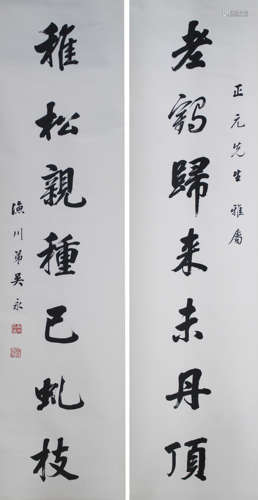 老鶴歸来未丹頂
正元先生雅屬
稚松親種已虬枝
漁川弟吳永